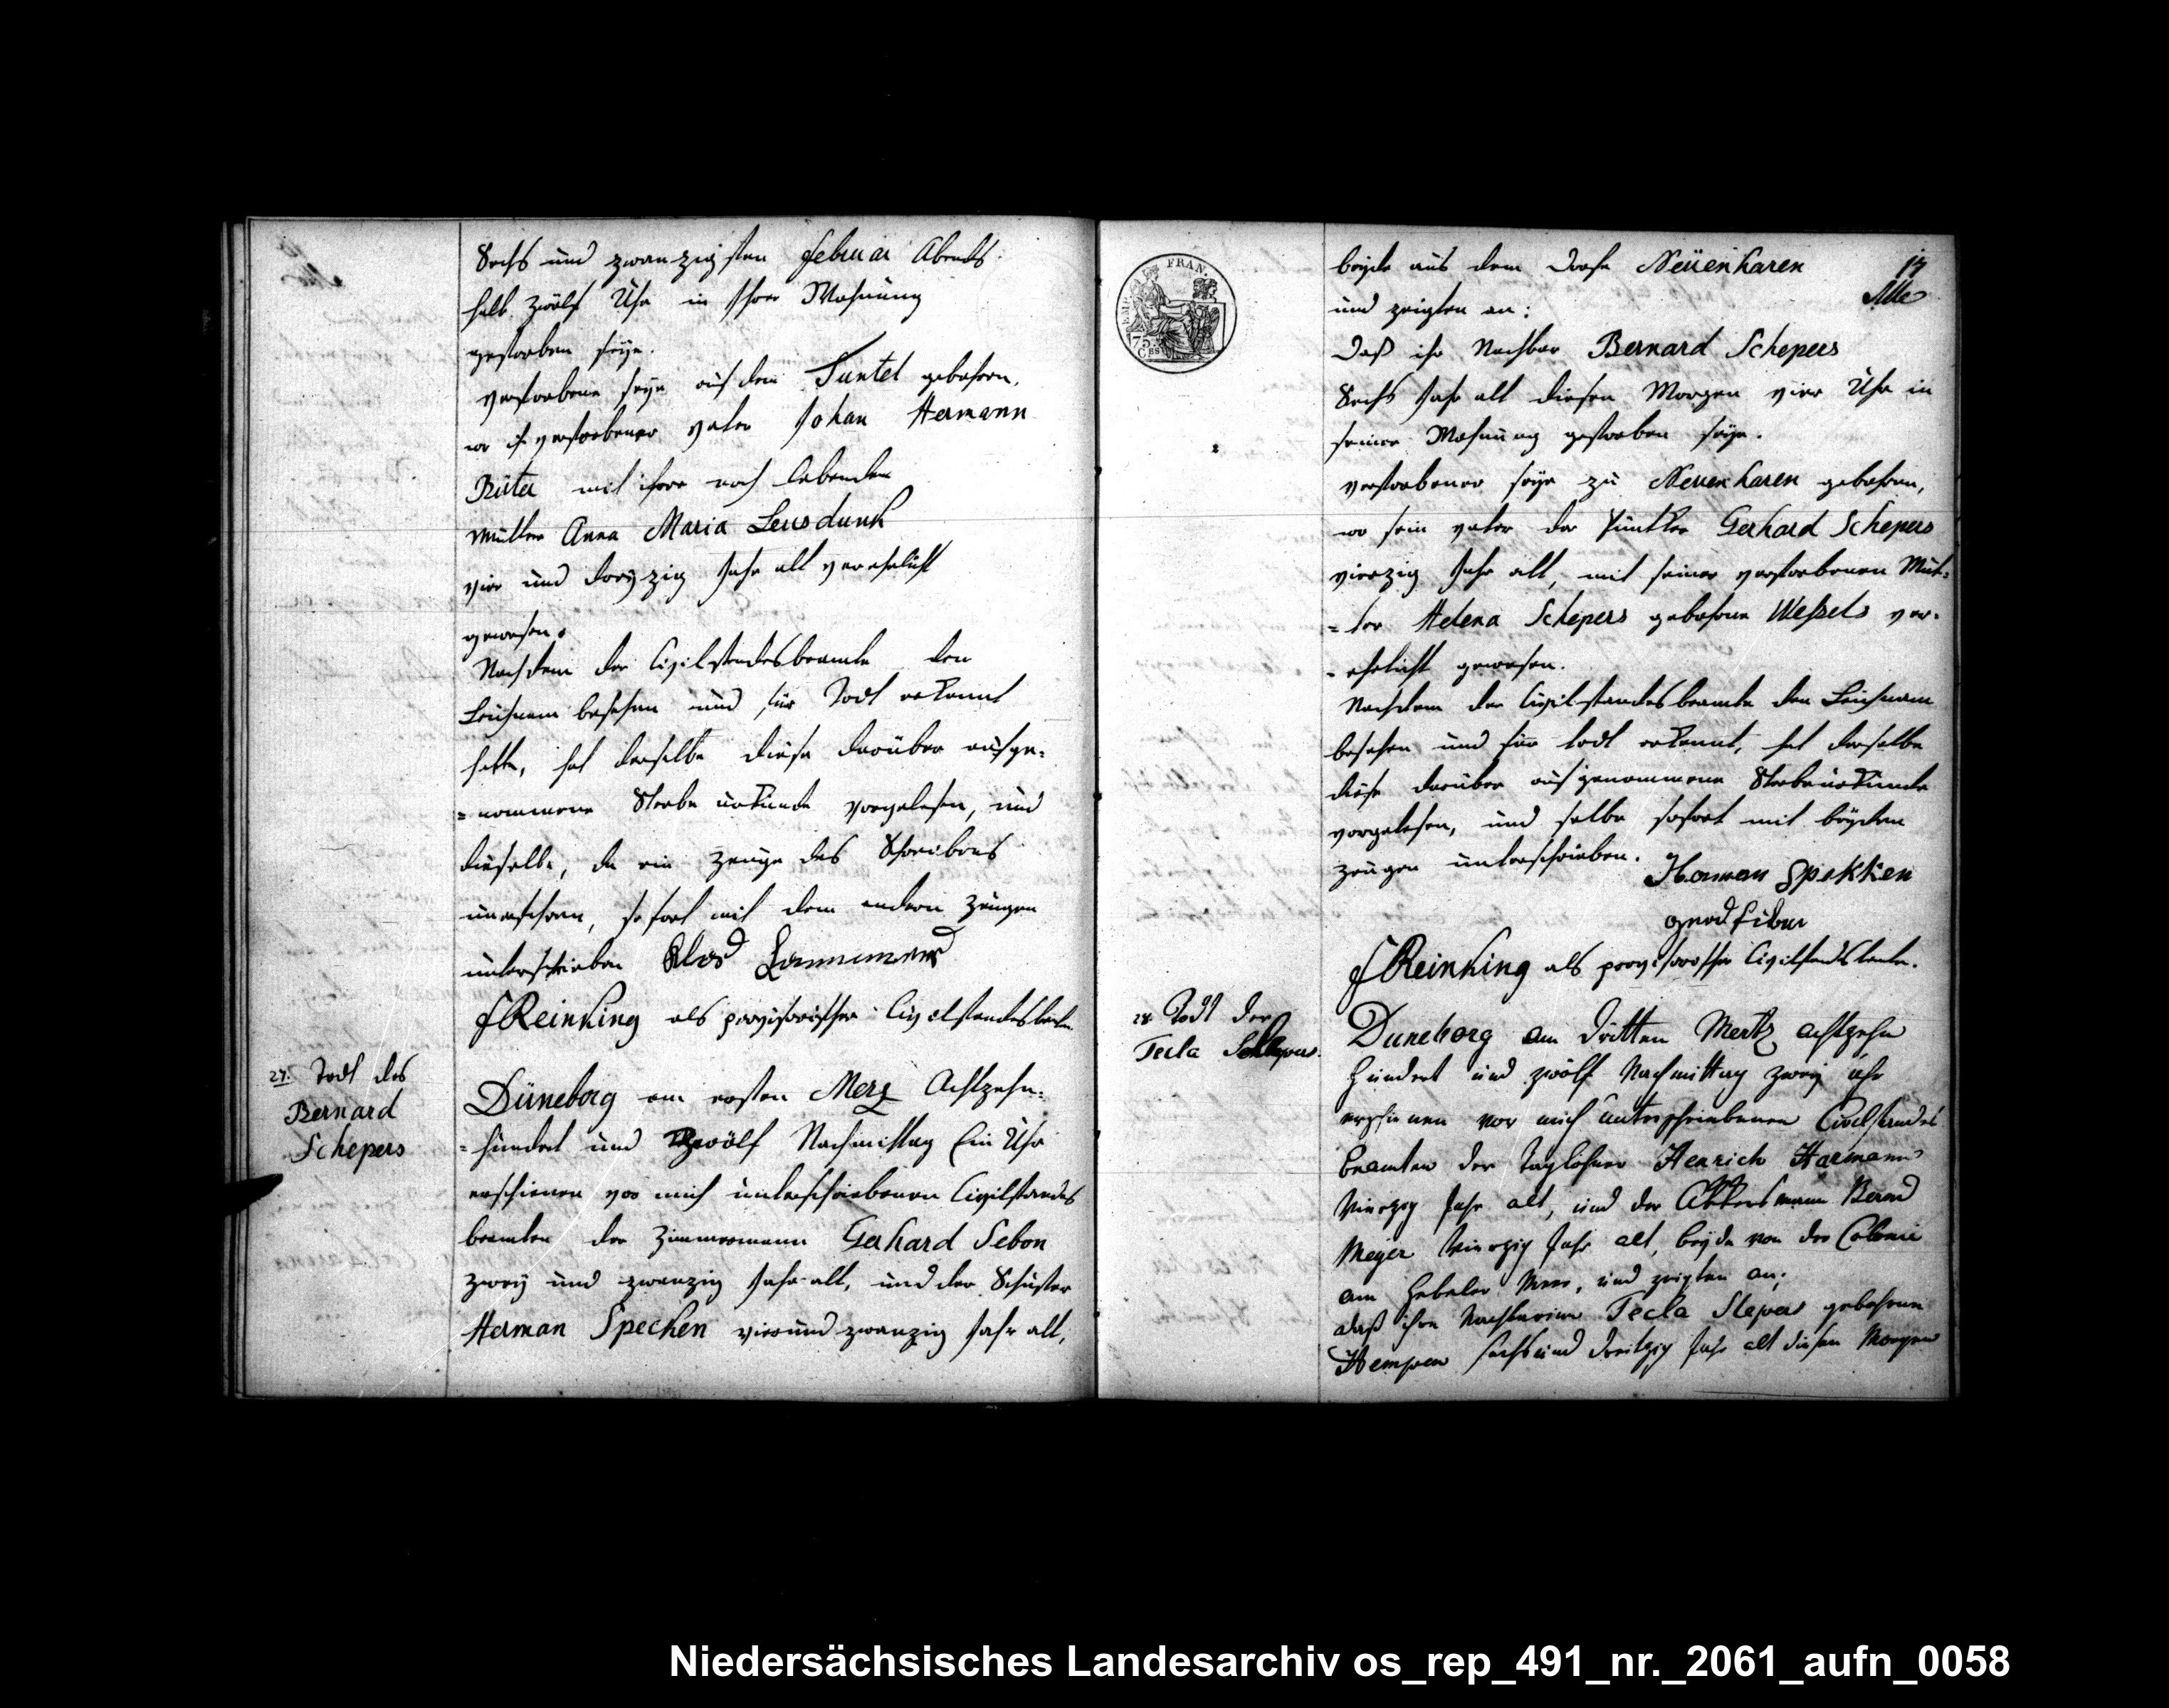 Sechs und zwanzigsten Februar Abends
halb zwölf Uhr in Ihrer Wohnung
gestorben seye.
Verstorbene seye auf dem Tuntel gebohren,
wo ihr verstorbener Vater Johan Hermann
Rüter mit ihrer noch lebenden
Mutter Anna Maria
vier und dreyzig Jahr alt verehelicht
gewesen.
Nachdem der Civilstandesbeamte den
Leichnam besehen und für Todt erkannt
hatte, hat derselbe diese darüber aufge-
=nommene Sterbe urkunde vorgelesen, und
dieselbe, da ein Zeuge des Schreibens
unerfahren, sofort mit dem andern Zeugen
unterschrieben
F Reinking als provisorischer Civilstandesbeamte
27. Todt des
Bernard
Schepers
Düneborg am ersten Merz Achtzehn-
=hundert und zwölf Nachmittag Ein Uhr
erschienen vor mich unterschriebenen Civilstandes
beamten der Zimmermann Gerhard
zwey und zwanzig Jahr alt, und der Schuster
Herman Specken vierund zwanzig Jahr alt,
EMP. FRAN.
75. CES
17
beyde aus dem Dorfe Neüenharen
und zeigten an:
Daß ihr Nachbar Bernard Schepers
Sechs Jahr alt diesen Morgen vier Uhr in
seiner Wohnung gestorben seye.
Verstorbener seye zu Neuenharen gebohren,
wo sein Vater der Gerhard Schepers
vierzig Jahr alt, mit seiner verstorbenen Mut-
=ter Helena Schepers gebohrne Weßels ver-
-ehelicht gewesen.
Nachdem der Civilstandesbeamte den Leichnam
besehen und für todt erkannt, hat derselbe
diese darüber aufgenommene Sterbeurkunde
vorgelesen, und selbe sofort mit beyden
Zeugen unterschrieben.
Herman Spekken
F Reinking als provisorischer Civilstandsbeamte.
28 Todt der
Tecla
Duneborg am dritten Mertz achtzehn
Hundert und zwölf Nachmittag zwey uhr
erschienen vor mich unterschriebenen Civilstandes
beamten der Taglöhner Henrich Harmann
Vierzig Jahr alt, und der Akkersmann Bernd
Meyer Vierzig Jahr alt, beyde von der Colonie
am Hebeler Meer, und zeigten an;
daß ihre Nachbarinn Tecla gebohrne
Hempen sechsund dreitzig Jahr alt diesen Morgen
Niedersächsisches Landesarchiv os_rep_491_nr._2061_aufn_0058